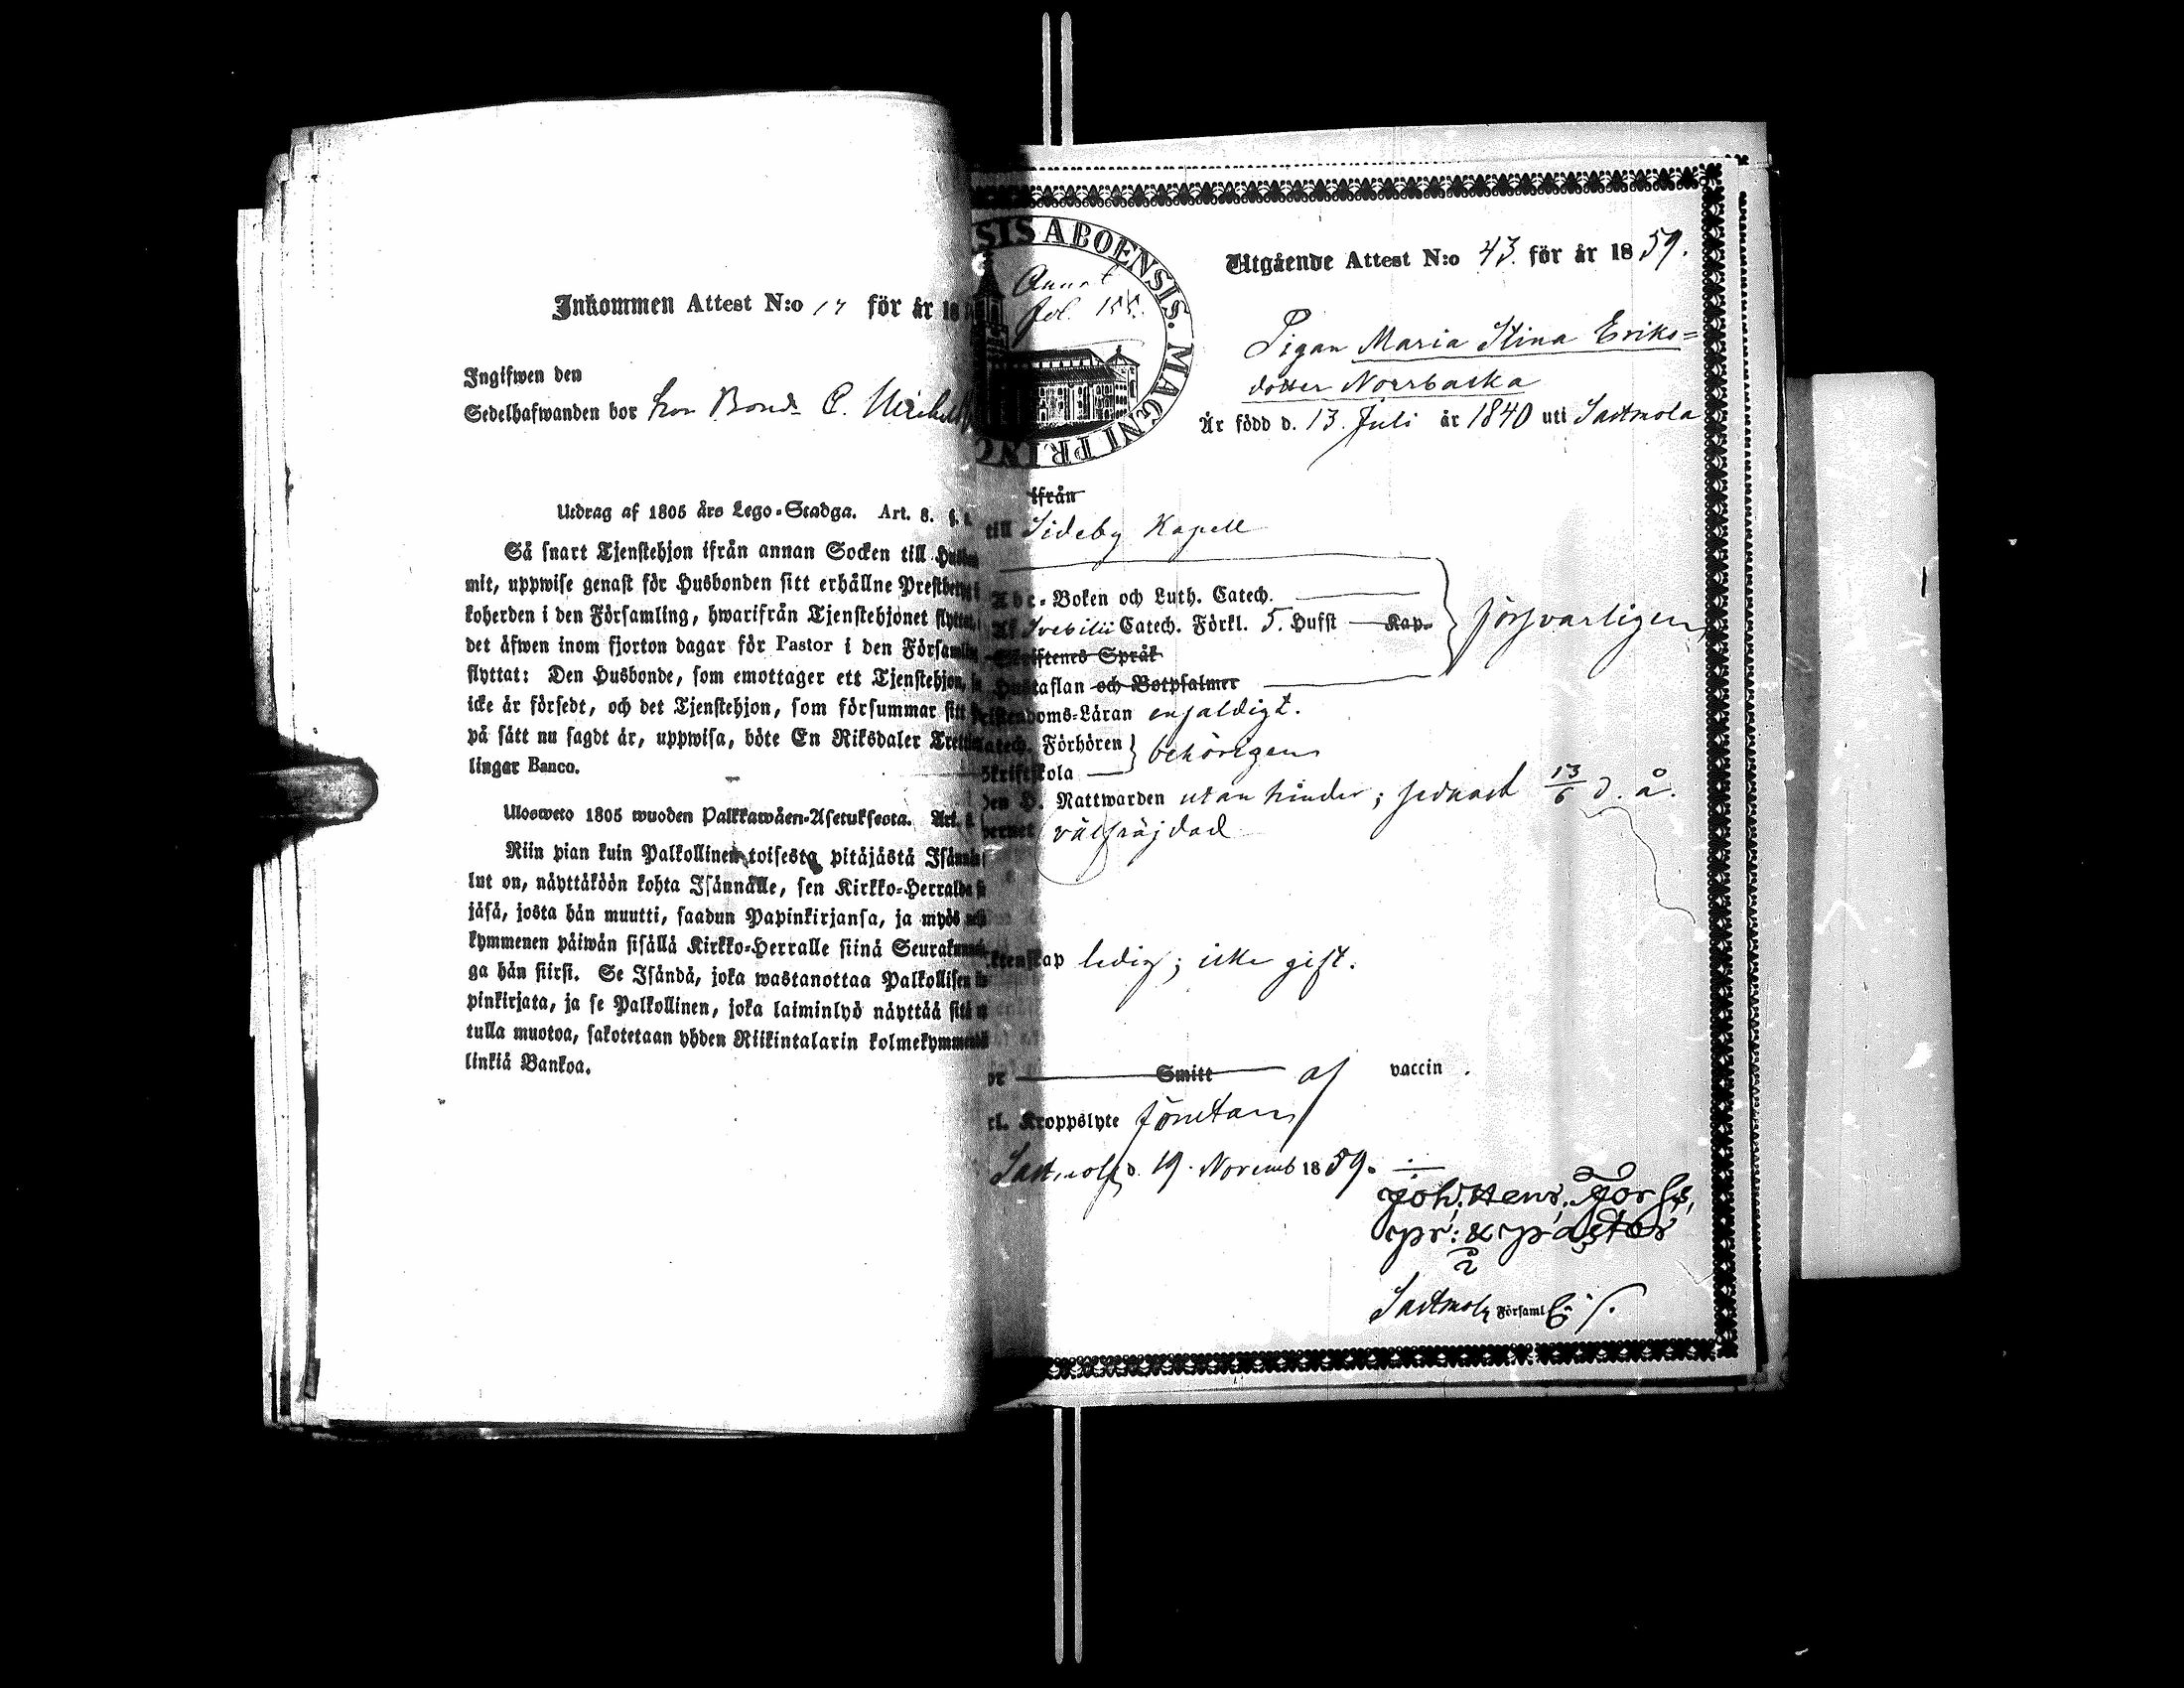 Inkommen Attest N:o 17 för år 18
Ingifwen den
Sedelhafwanden bor hos Bond. C.
Utdrag af 1805 års Lego-Stadga. Art. 8. §.
Så snart Tjenstehjon ifrån annan Socken till
mit, uppwise genast för Husbonden sitt erhållne
koherden i den Församling, hwarifrån Tjenstehjonet
det äfwen inom fjorton dagar för Pastor i den
flyttat: Den Husbonde, som emottager ett Tjenstehjon,
icke är försedt, och det Tjenstehjon, som försummar sitt
på sätt nu sagdt är, uppwisa, böte En Riksdaler
lingar Banco.
Ulosweto 1805 wuoden Palkkawäen-Asetuksesta. Art.
Niin pian kuin Palkollinen toisesta pitäjästä
lut on, näyttäköön kohta Isännälle, sen Kirkko-Herralda
jäsä, josta hän muutti, saadun Papinkirjansa, ja myös
kymmenen päiwän sisällä Kirkko-Herralle siinä
ga hän siirsi. Se Isändä, joka wastanottaa Palkollisen
pinkirjata, ja se Palkollinen, joka laiminlyö näyttää sitä
tulla muotoa, sakotetaan yhden Riikintalarin
linkiä Bankoa.
SIS ABOENSIS. MAGNI PRINC
Annot
fol. 155.
Utgående Attest N:o 43. för år 1859.
Pigan Maria Stina Eriks=
dotter Norrbacka
Är född d. 13. Juli år 1840 uti Sastmola
ifrån
till Sideby Kapell
Abc-Boken och Luth. Catech.
Af Svebilii Catech. Förkl. 5. Hufst Kap. försvarligen
Skriftenes Språk
Hustaflan och Botpsalmer
Läran enfaldigt.
Förhören
behörigen
Skriftskola
Den H. Nattwarden utan hinder; sednast 13/6 d. å.
välfräjdad
ledig; icke gift.
Smitt af vaccin.
Kroppslyte
Sastmola d. 19. Novemb 1859.
Joh. Henr. Forss,
pr: & pastor
i
Sastmola Församl